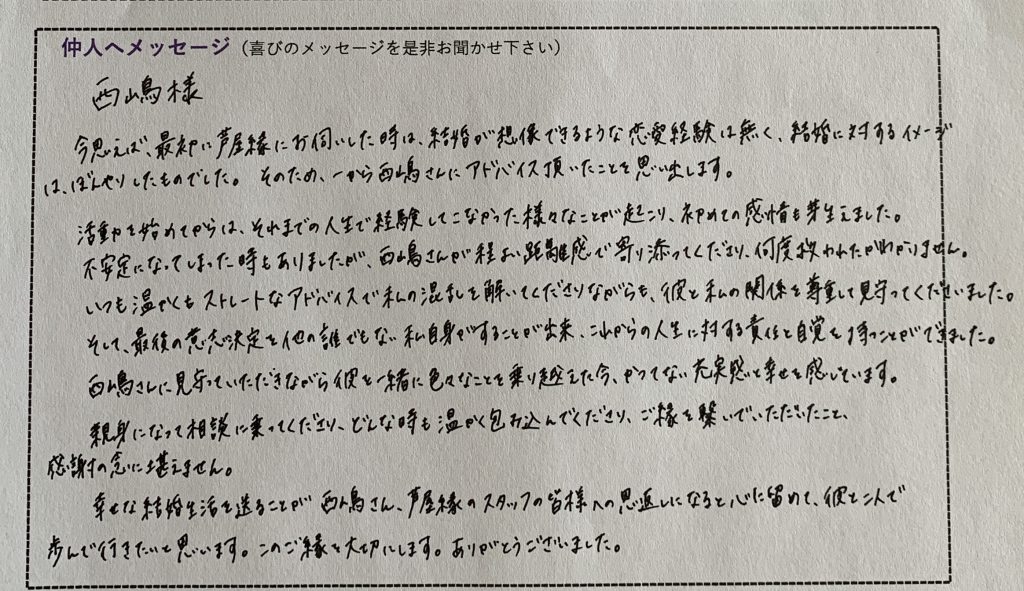 仲人へメッセージ（喜びのメッセージを是非お聞かせ下さい）
西嶋様
今思えば、最初に芦屋縁にお伺いした時は、結婚が想像できるような恋愛経験は無く、結婚に対するイメージ
は、ぼんやりしたものでした。そのため、一から西嶋さんにアドバイス頂いたことを思い出します。
活動を始めてからは、それまでの人生で経験してこなかった様々なことが起こり、初めての感情も芽生えました。
不安定になってしまった時もありましたが、西嶋さんが程よい距離感で寄り添ってくださり、何度救われたかわかりません。
いつも温かくもストレートなアドバイスで私の混乱を解いてくださりながらも、彼と私の関係を尊重して見守ってくださいました。
そして、最後の意志決定を他の誰でもない私自身がすることが出来、これからの人生に対する責任と自覚を持つことができました。
西嶋さんに見守っていただきながら彼と一緒に色々なことを乗り越えた今、かつてない充実感と幸せを感じています。
親身になって相談に乗ってくださり、どんな時も温かく包み込んでくださり、ご縁を繋いでいただいたこと、
感謝の念に堪えません。
幸せな結婚生活を送ることが西嶋さん、芦屋縁のスタッフの皆様への恩返しになると心に留めて、彼と二人で
歩んで行きたいと思います。このご縁を大切にします。ありがとうございました。